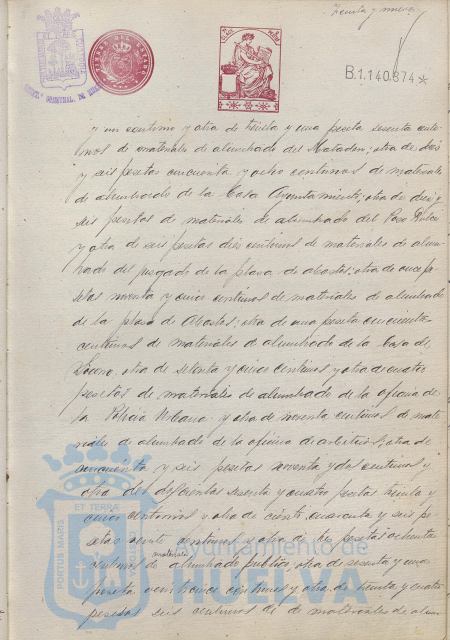 Treinta y nueve
B.1.140.874 *
y un centimo y otra de treinta y una peseta sesenta centi
mos de materiales de alumbrado del Matadero; otra de diez
y seis pesetas cincuenta y ocho centimos de materiales
de alumbrado de la Casa Ayuntamiento; otra de diez y
seis pesetas de materiales de alumbrado del
y otra de seis pesetas diez centimos de materiales de alum
brado del juzgado de la plaza de abastos; otra de once pe
setas noventa y cinco centimos de materiales de alumbrado
de la plaza de Abastos; otra de una peseta cincuenta
centimos de materiales de alumbrado de la Casa de
Socorro, otra de setenta y cinco centimos y otra de cuatro
pesetas de materiales de alumbrado de la oficina de
la Policia Urbana y otra de noventa centimos de mate
riales de alumbrado de la oficina de arbitrios; otra de
cincuenta y seis pesetas noventa y dos centimos y
otra de doscientas sesenta y cuatro pesetas treinta y
cinco centimos y otra de ciento cuarenta y seis pe
setas veinte centimos y otra de pesetas ochenta
centimos de materiales alumbrado publico, otra de sesenta y una
peseta centimos y otra de treinta y cuatro
pesetas seis centimos de de materiales de alum
PORTUS MARIS ET TERRAE
Ayuntamiento de
HUELVA